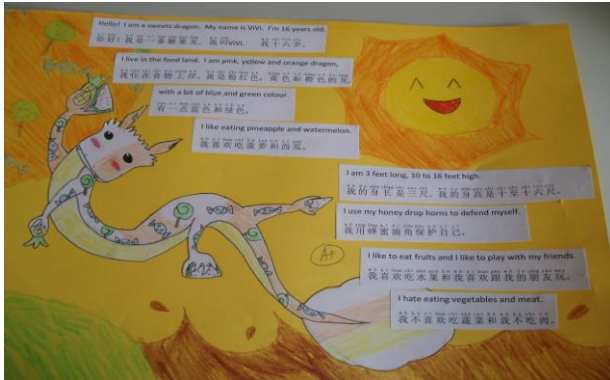 Hello! I am a sweets dragon. My name is ViVi. I'm 16 years old.
你好！我是一条糖果龙。我叫ViVi. 我十六岁。
I live in the food land. I am pink, yellow and orange dragon,
我住在食物王岸。我是粉红色，黄色和橙色的龙
with a bit of blue and green colour.
有一点蓝色和绿色。
I like eating pineapple and watermelon.
我喜欢吃菠萝和西瓜。
I am 3 feet long, 10 to 16 feet high.
我的身长是三尺，我的身高是十至十六尺。
I use my honey drop horns to defend myself.
我用蜂蜜滴角保护自己。
A+
I like to eat fruits and I like to play with my friends.
我喜欢吃水果和我喜欢跟我的朋友玩。
I hate eating vegetables and meat.
我不喜欢吃蔬菜和我不吃肉。